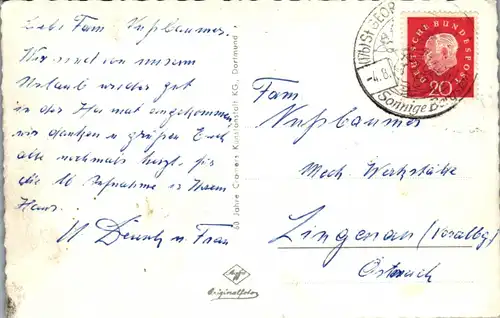 Liebe Fam Nußbaumer
Wir sind von unserm
Urlaub wieder gut
in der Heimat angekommen
wir danken u grüßen Euch
alle nochmals herzl. für
die lb Aufnahme in Ihrem
Haus.
u Frau
60 Jahre Cramers Kunstanstalt KG, Dortmund
Agfa
Originalfoto
ST. GEOR
-4.8.
Sonnige Berg
DEUTSCHE BUNDESPOST
20
Fam
Nußbaumer
Mech. Werkstätte
Lingenau (Vorarlbg)
Österreich